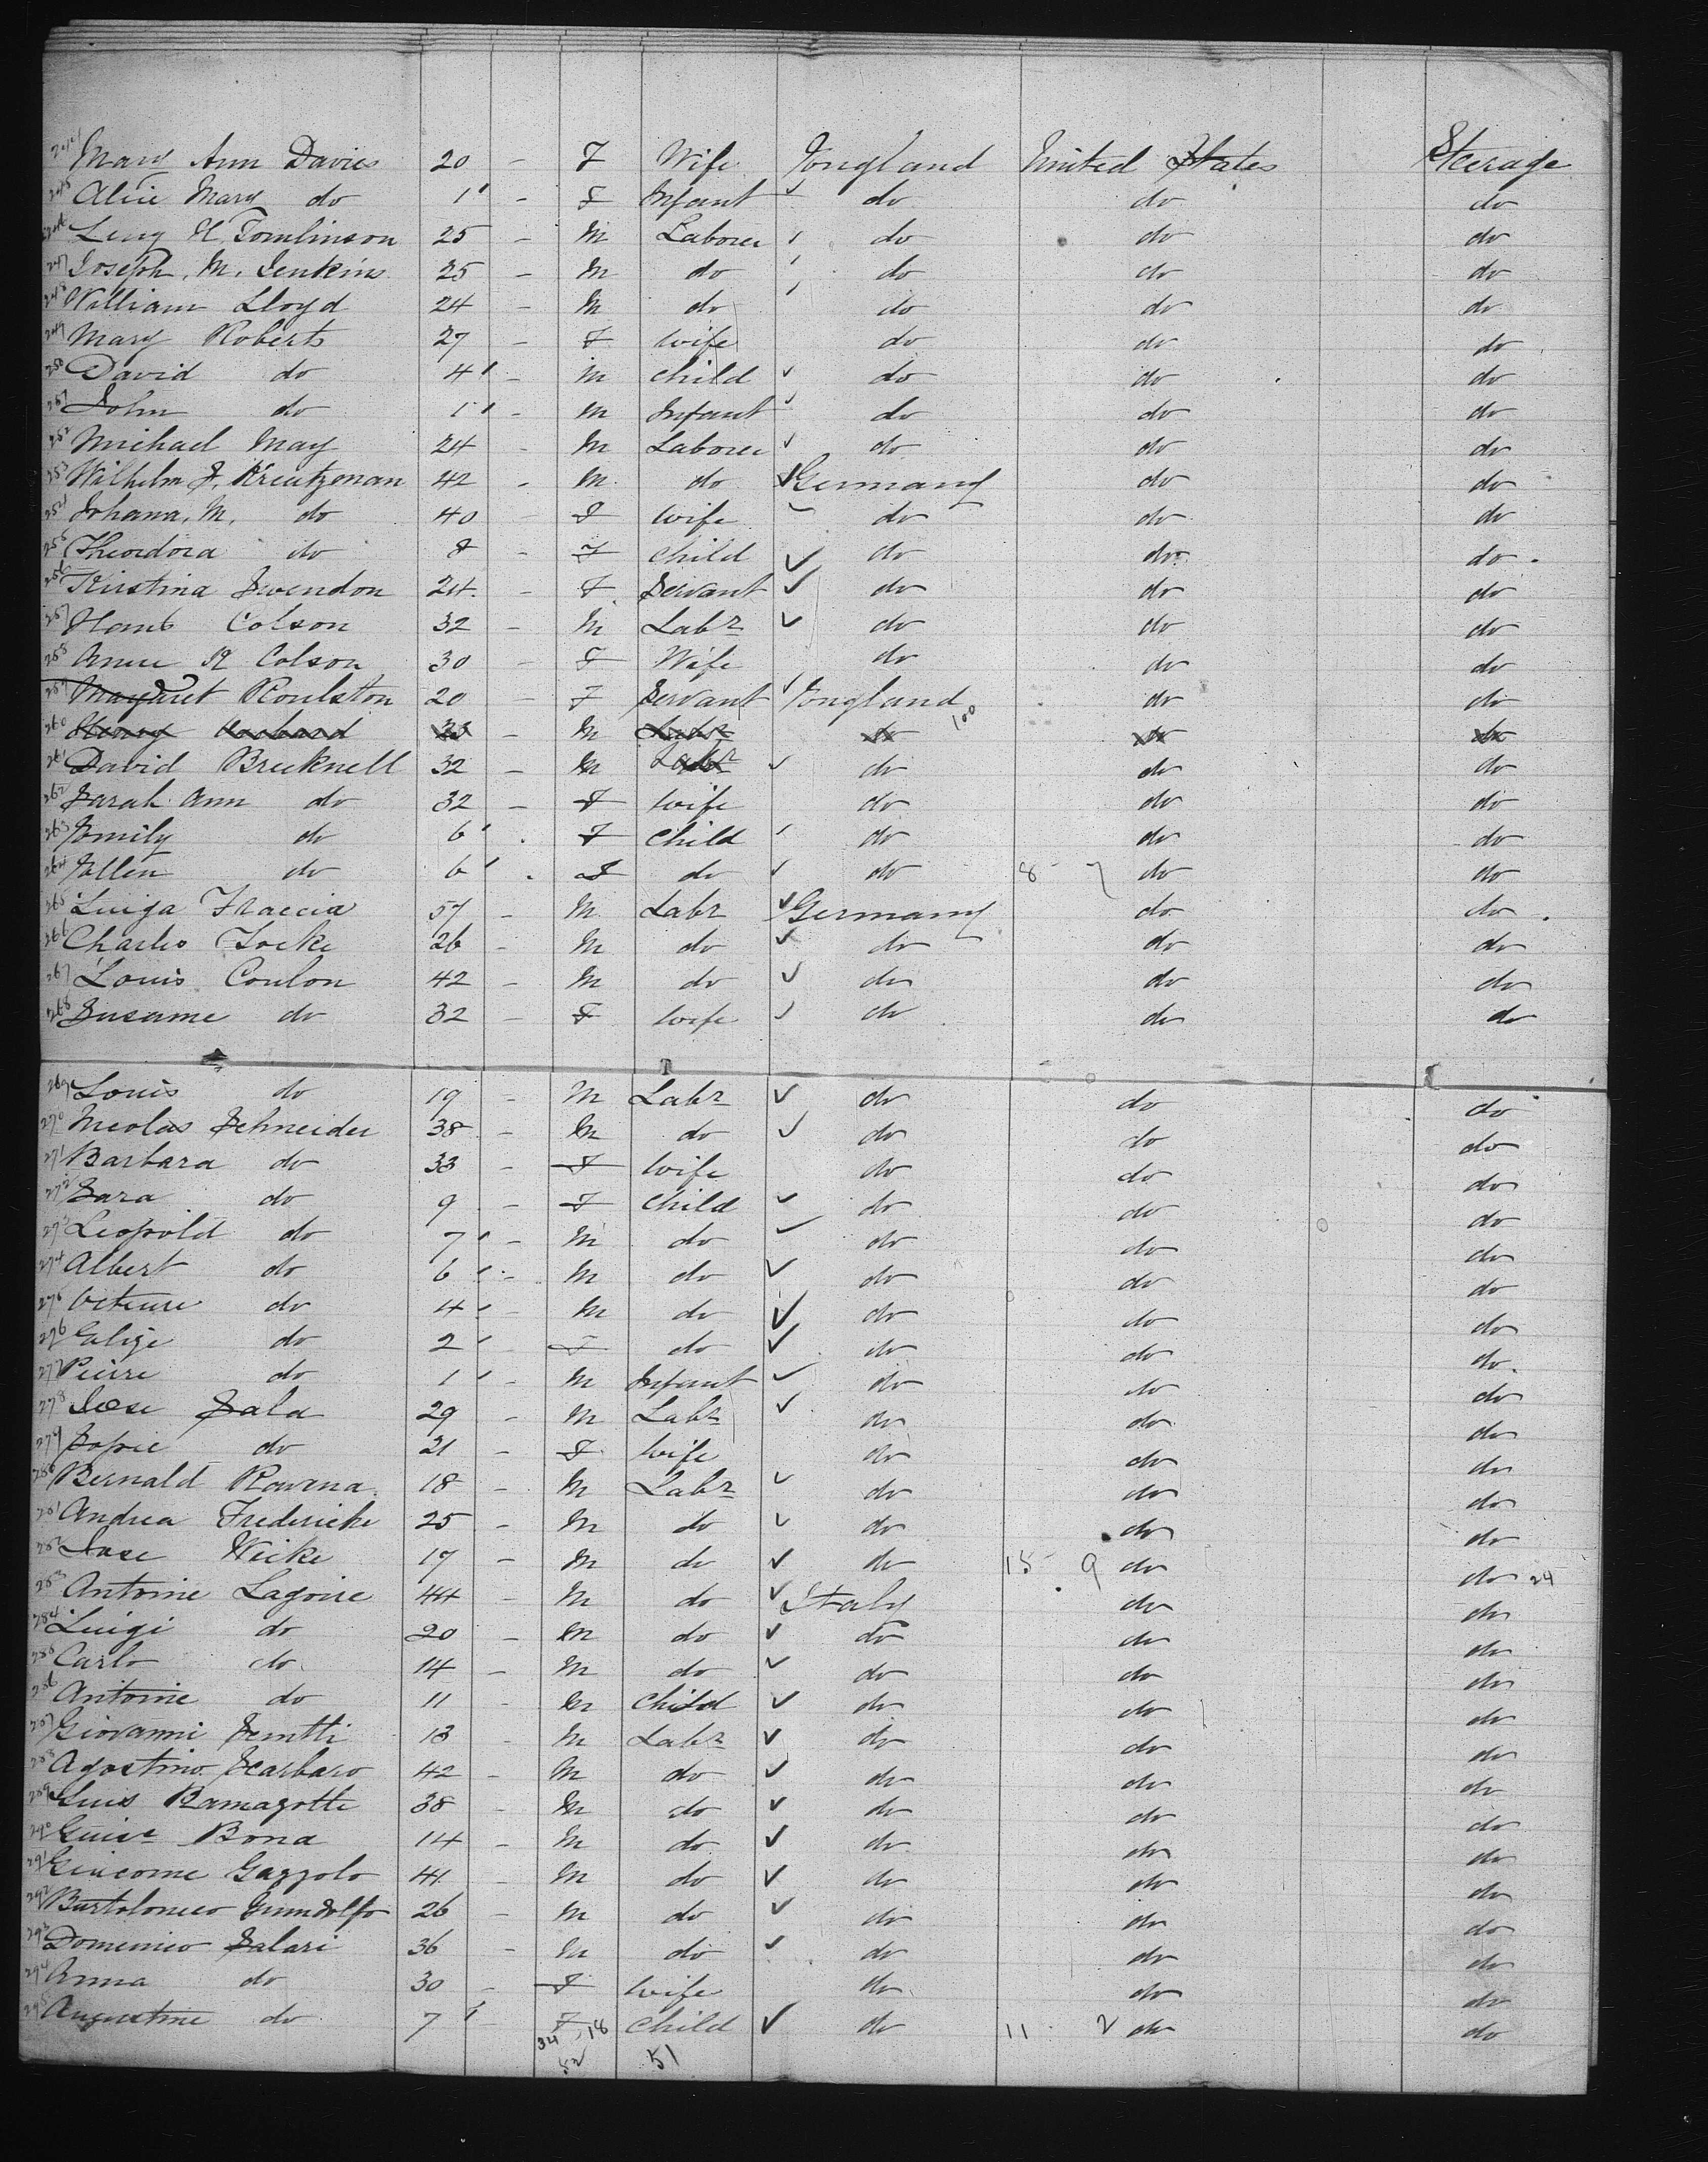 244 Mary Ann Davies 20 - F Wife England United States Steerage
245 Alice Mary do 1' - F Infant ✓ do do do
246 H. Tomlinson 25 - M Laborer do do do
247 Joseph M. Jenkins 25 - M do do do do
248 William Lloyd 24 - M do do do do
249 Mary Roberts 27 - F Wife do do do
250 David do 4' - M child ✓ do do do
251 John do 1' - M Infant ✓ do do do
252 Michael May 24 - M Laborer ✓ do do do
253 Wilhelm F. Kreutzeman 42 - M do ✓ Germany do do
254 Johana. M. do 40 F Wife do do do
255 Theordora do 8 - F child ✓ do do do
256 Kirstina Swendon 24 - F Servant ✓ do do do
257 Colson 32 - M Labr ✓ do do do
258 Colson 30 - F Wife do do do
259 Margaret Roulston 20 - F Servant ✓ England do do
260 Henry 33 - M Labr do 100 do do
261 David Brecknell 32 - M Labr ✓ do do do
262 Sarah Ann do 32 - F Wife do do do
263 Emily do 6' . F child do do do
264 Ellen do 6' . F do do 8 7 do do
265 Luiga Fraccia 57 - M Labr ✓ Germany do do
266 Charles 26 - M do ✓ do do do
267 Louis Coulon 42 - M do ✓ do do do
268 Susanne do 32 - F Wife ✓ do do do
269 Louis do 19 - M Labr ✓ do do do
270 Nicolas Schneider 38 - M do ✓ do do do
271 Barbara do 33 - F Wife do do do
272 Sara do 9 - F child ✓ do do do
273 Leopold do 7' - M do ✓ do do do
274 Albert do 6' - M do ✓ do do do
275 do 4' - M do ✓ do do do
276 do 2' F do ✓ do do do
277 Pierre do 1' - M Infant ✓ do do do
278 Sala 29 - M Labr ✓ do do do
279 Sopie do 21 - F Wife do do do
280 Bernald Rowena 18 - M Labr ✓ do do do
281 Andrea Fredericke 25 - M do ✓ do do do
282 Weike 17 - M do ✓ do 15 9 do do 24
283 Antoine Lagoire 44 - M do ✓ Italy do do
284 Luigi do 20 - M do ✓ do do do
285 Carlo do 14 - M do ✓ do do do
286 Antoine do 11 - M child ✓ do do do
287 Giovanni 13 - M Labr ✓ do do do
288 Agostino Scarbaro 42 - M do ✓ do do do
289 Luis Ramagotte 38 - M do ✓ do do do
290 Bona 14 - M do ✓ do do do
291 Giacome Gazzolo 44 - M do ✓ do do do
292 Bartolomeo 26 - M do ✓ do do do
293 Domenico Salari 36 - M do ✓ do do do
294 Anna do 30 - F Wife do do do
295 Augustine do 7' - F child ✓ do 11 2 do do
34 18
52 51